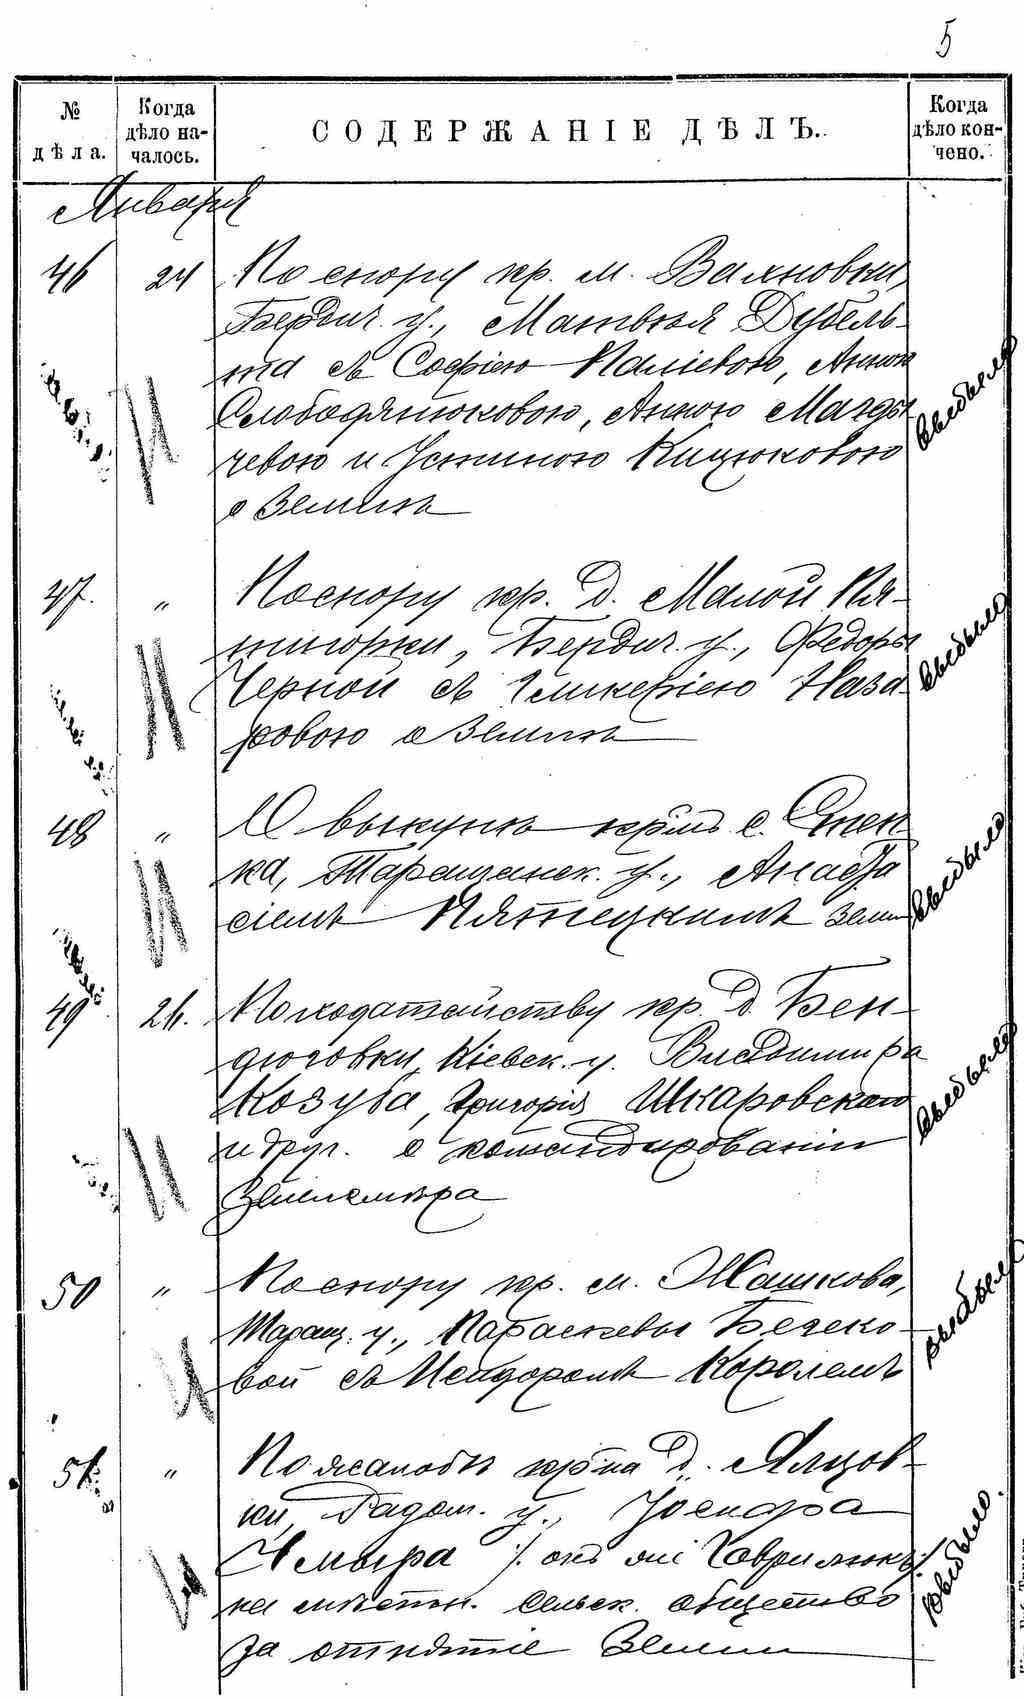 5
№ дѣла.
Когда дѣло на-
чалось.
СОДЕРЖАНІЕ ДѢЛЪ.
Когда дѣло кон-
чено.
Января
46 24 По спору кр. м. Вахновки,
Бердич. у., Матвѣя Дубель-
та съ Софіею Паліевою, Анною
Слободянюковою, Анною Магды-
чевою и Устиною Кицюковою
о землѣ
выбыло
47. " По спору кр. д. Малой Пя-
тигорки, Бердич. у., Федоры
Черной съ Гликеріею Наза-
ровою о землѣ
выбыло
48 " О выкупѣ кр-мъ с. Степ-
ка, Таращанск. у., Анаѳа
сіемъ Пятецкимъ земли
выбыло
49 26. По ходатайству кр. д. Бен-
дюговки, Кіевск. у. Владиміра
Козуба, Григорія Шкаровскаго
и друг. о командированіи
землемѣра
выбыло
50 " По спору кр. м. Жашкова,
Таращ. у., Параскевы Бегеко-
вой съ Исидоромъ Королемъ
выбыло
51. " По жалобѣ кр-на д. Ялцов-
ки, Радом. у.,
Хмыра /: онъ же Гаврилюкъ :/
на мѣстн. сельск. общество
за отнятіе земли
выбыло.